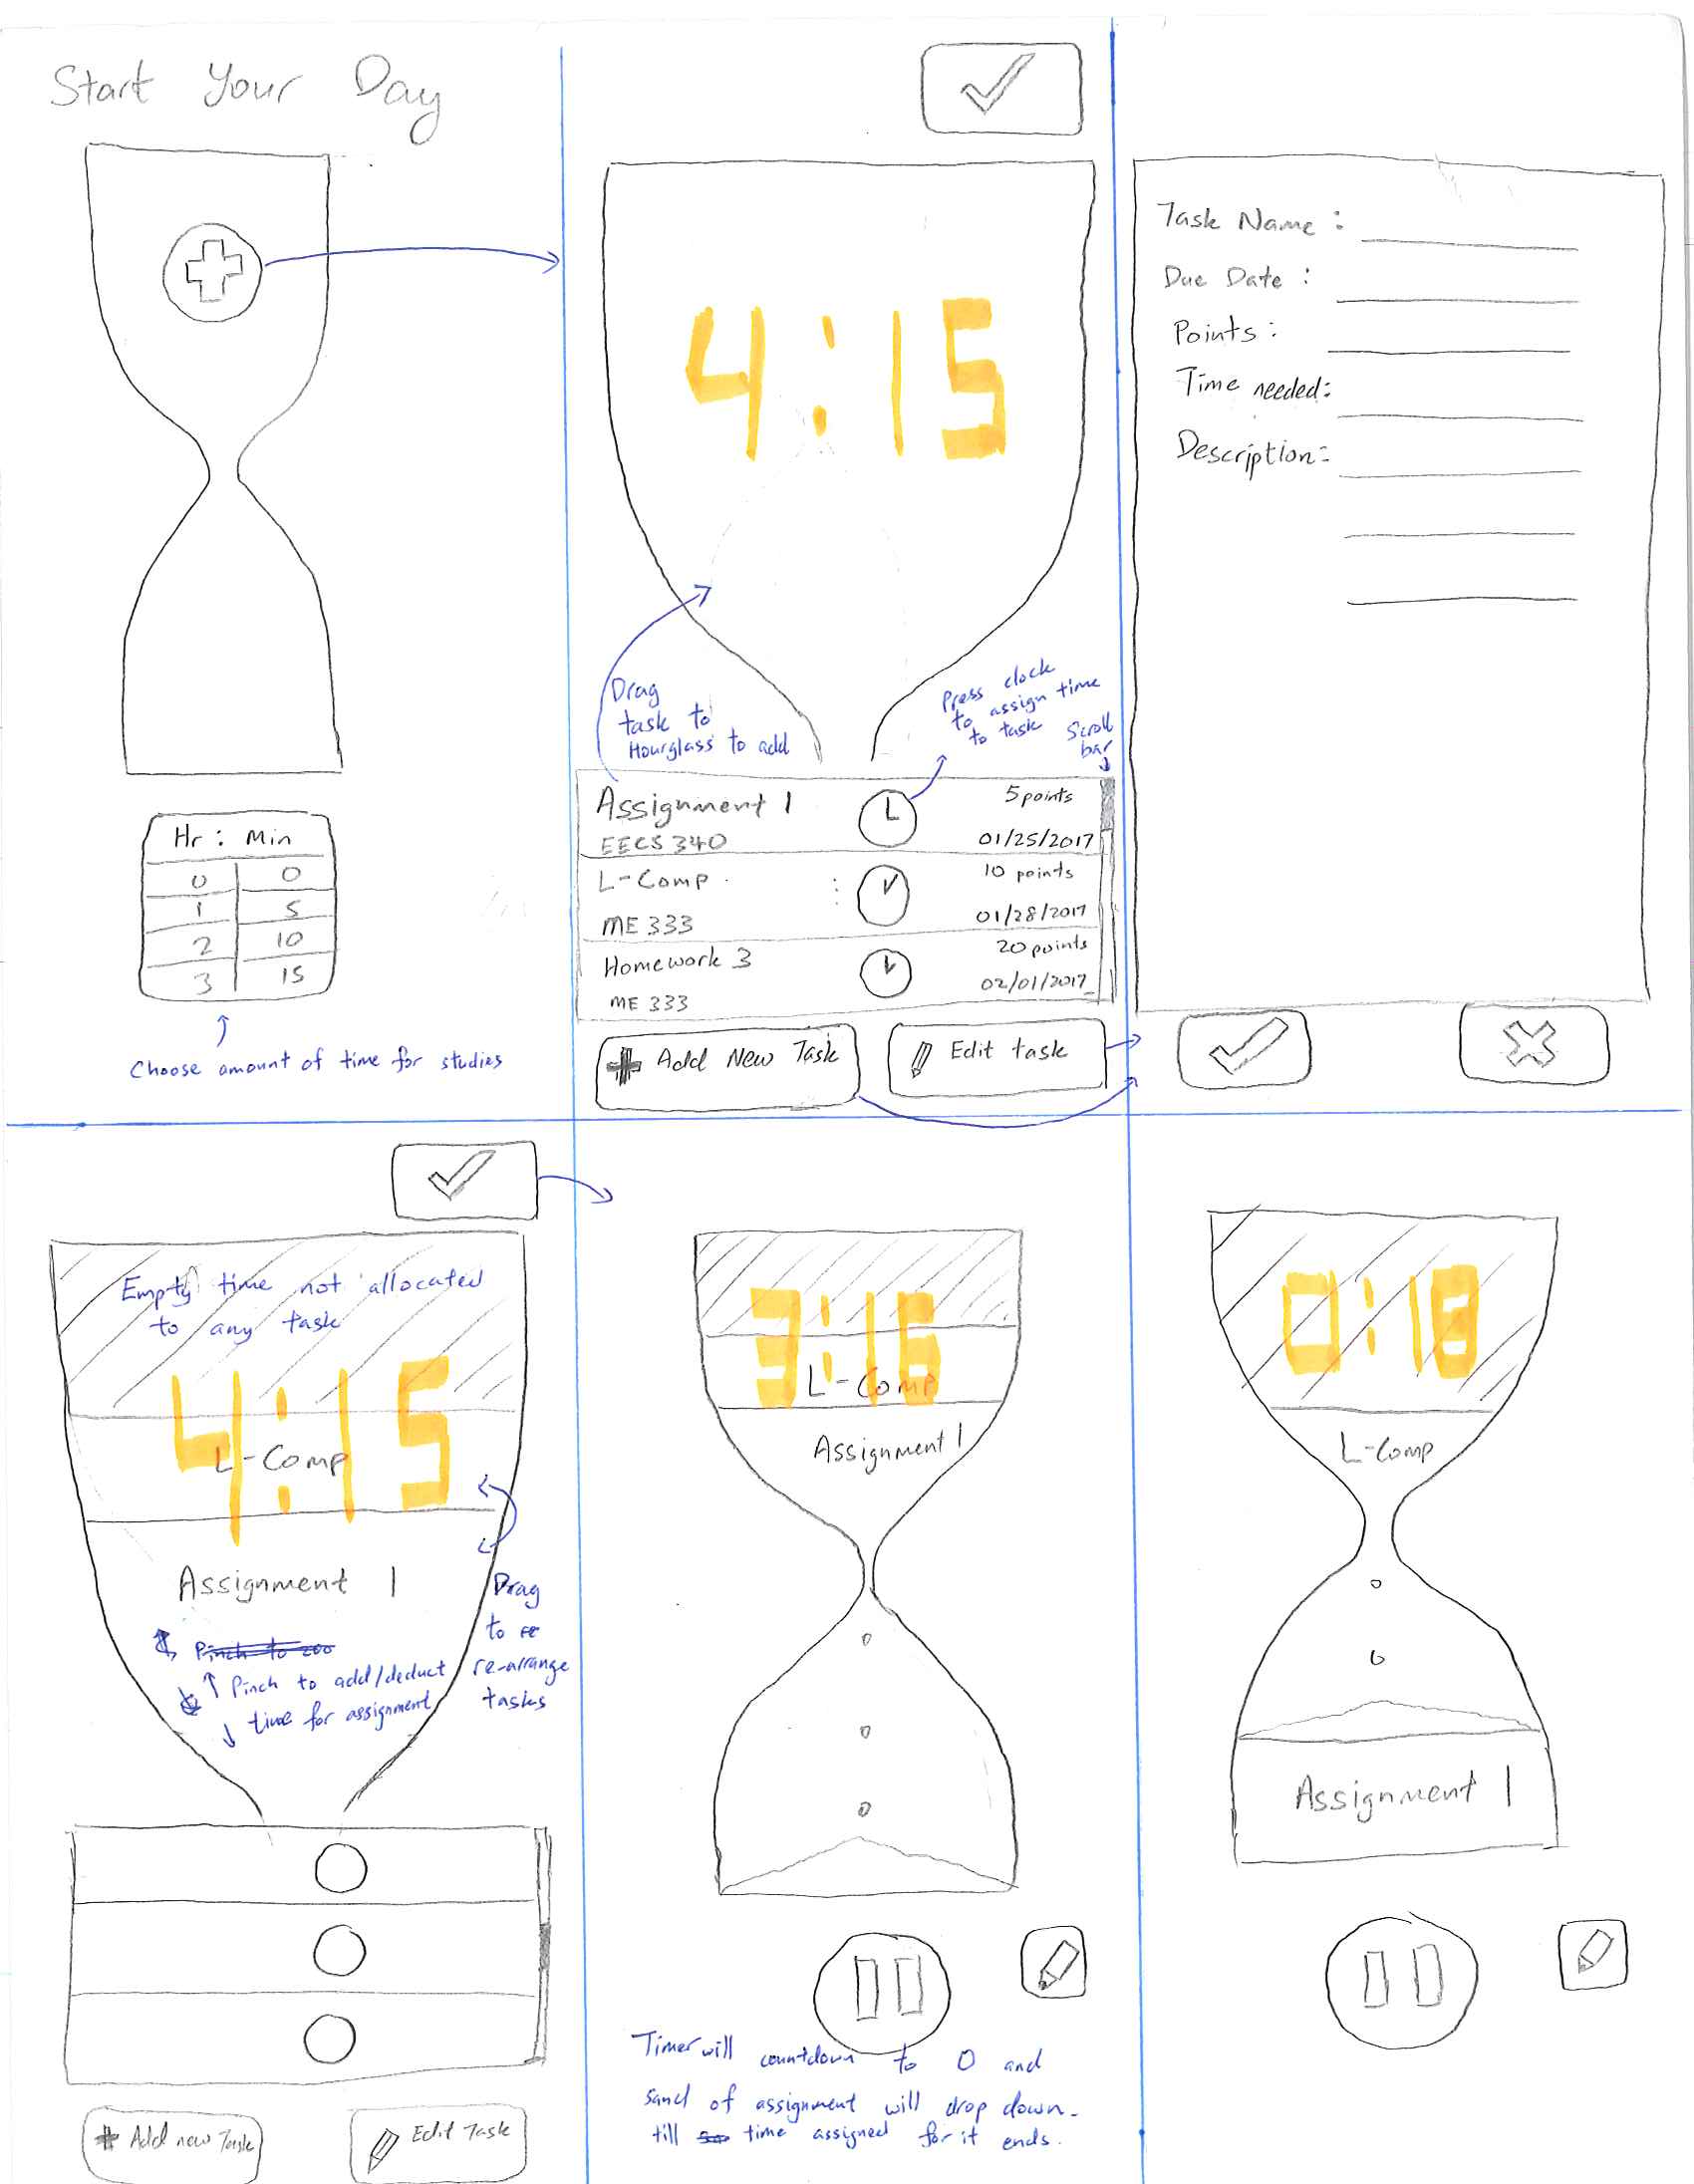 Start Your Day
Hr : Min
0 0
1 5
2 10
3 15
Choose amount of time for studies
4:15
Drag
task to
Hourglass to add
Press clock
to assign time
to task
Scroll
bar
Assignment 1
5 points
EECS 340
01/25/2017
L-Comp
10 points
ME 333
01/28/2017
Homework 3
20 points
ME 333
02/01/2017
Add New Task
Edit task
Task Name :
Due Date :
Points :
Time needed:
Description:
Empty time not allocated
to any task
4:15
L-Comp
Assignment 1
Pinch to zoo
Pinch to add/deduct
time for assignment
Drag
to re
re-arrange
tasks
Add new Task
Edit Task
3:16
L-Comp
Assignment 1
Timer will countdown to 0 and
sand of assignment will drop down
till time assigned for it ends.
0:18
L-Comp
Assignment 1